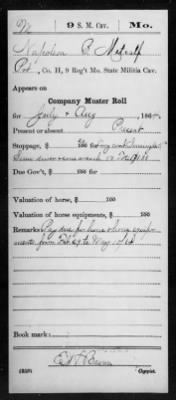 M 9 S. M. Cav. Mo.
Napoleon B. Metcalf
Pvt, Co. H, 9 Reg't Mo. State Militia Cav.
Appears on
Company Muster Roll
for July & Aug, 1864.
Present or absent Present
Stoppage, $ 100 for
Due Gov't, $ 100 for
Valuation of horse, $ 100
Valuation of horse equipments, $ 100
Remarks: Pay due for horse & horse equip
ments from Feb 29 to May 10/64
Book mark:
Copyist.
(858)